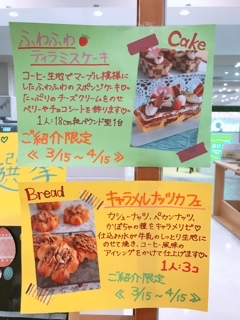 ふわふわ
ティラミスケーキ
Cake
コーヒー生地でマーブル模様に
したふわふわのスポンジケーキ♡
たっぷりのチーズクリームをのせ
ベリーやチョコシートを飾ります♡
1人:18cm紙パウンド型1台
ご紹介限定
≪ 3/15〜4/15 ≫
Bread
キャラメルナッツカフェ
カシューナッツ、ペカンナッツ、
かぼちゃの種をキャラメリゼ♡
仕込み水が牛乳のしっとり生地に
のせて焼き、コーヒー風味の
アイシングをかけて仕上げます♡
1人:3コ
ご紹介限定
≪ 3/15〜4/15 ≫